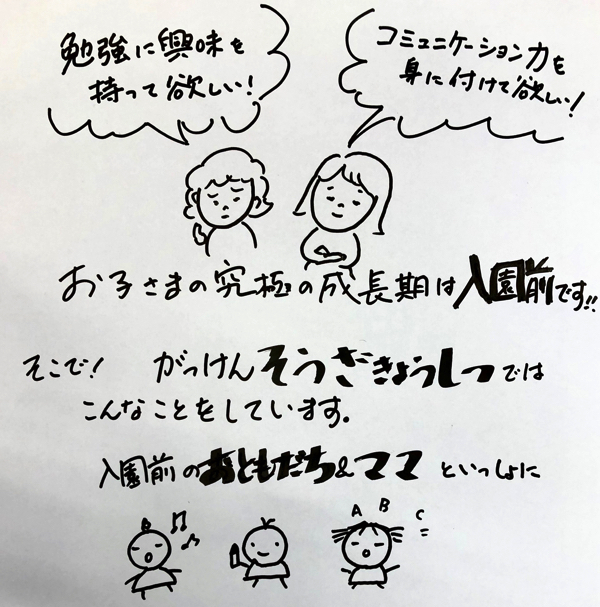 勉強に興味を
持って欲しい!
コミュニケーション力を
身に付けて欲しい!
お子さまの究極の成長期は入園前です!!
そこで! がっけんそうざきょうしつでは
こんなことをしています。
入園前のおともだち&ママといっしょに
A B C